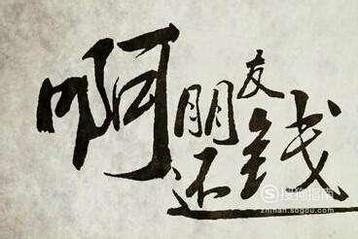 啊朋友
还钱
搜狗指南
zhinan.sogou.com